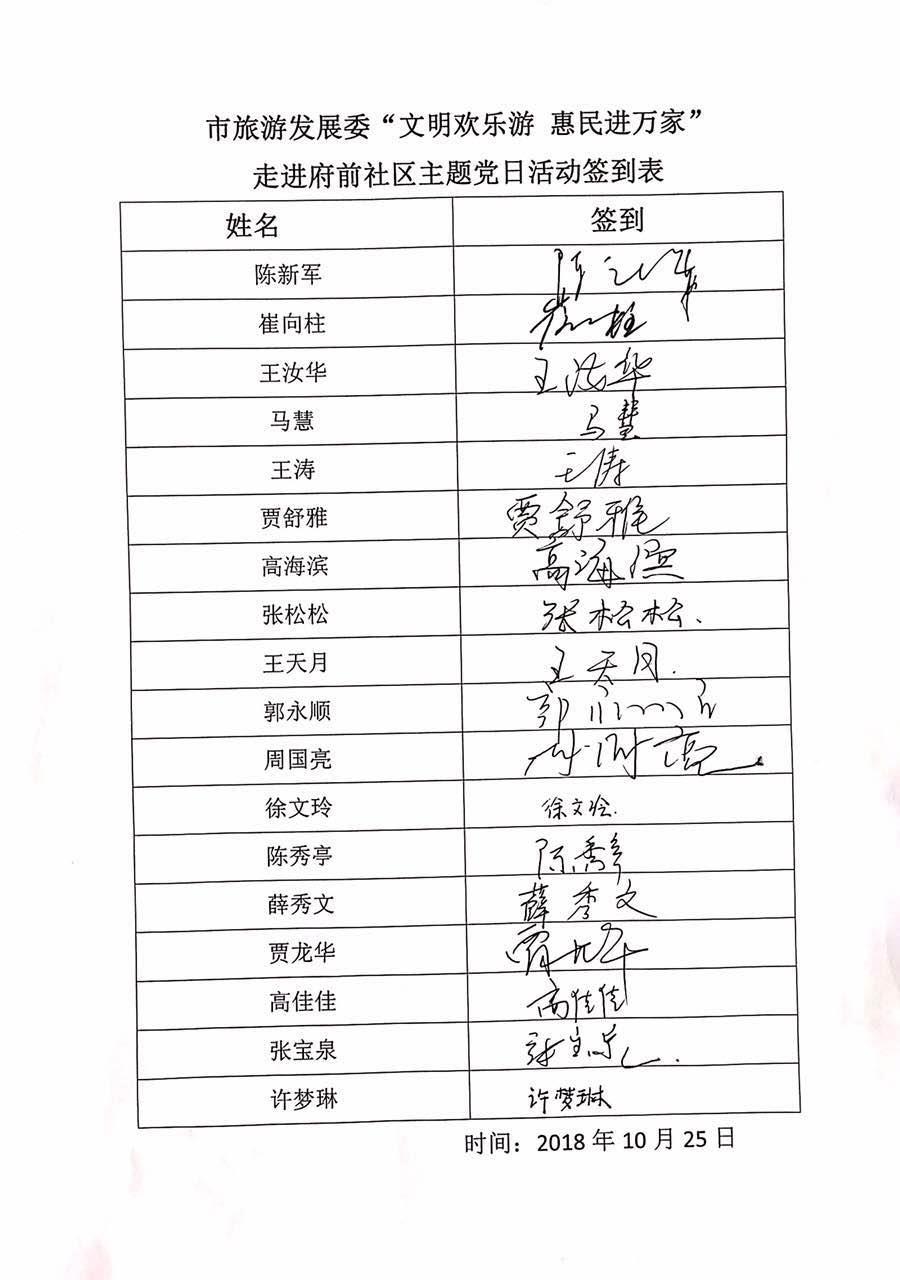 市旅游发展委“文明欢乐游 惠民进万家”
走进府前社区主题党日活动签到表
姓名 签到
陈新军
崔向柱
王汝华 王汝华
马慧 马慧
王涛 王涛
贾舒雅 贾舒雅
高海滨 高海滨
张松松 张松松.
王天月 王天月.
郭永顺
周国亮
徐文玲 徐文玲.
陈秀亭 陈秀亭
薛秀文 薛秀文
贾龙华
高佳佳 高佳佳
张宝泉 张宝泉.
许梦琳 许梦琳
时间：2018 年 10 月 25 日